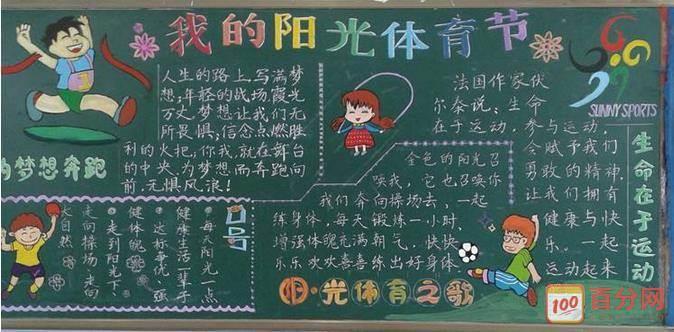 我的阳光体育节
人生的路上,写满梦
想;年轻的战场,霞光
万丈,梦想,让我们无
所畏惧;信念点燃胜
利的火把;你我,就在舞台
的中央,为梦想而奔跑向
前,无惧风浪!
为梦想奔跑
法国作家伏
尔泰说:生命
在于运动,参与运动
会赋予我们
勇敢的精神,
让我们拥有
健康与快
乐。一起
运动起来
SUNNY SPORTS
生命在于运动
金色的阳光召
唤我,它也召唤你
我们奔向操场去,一起
练身体,每天锻炼一小时,
增强体魄充满朝气,快快
乐乐欢欢喜喜练出好身体
阳光体育之歌
口号
每天阳光一点
健康生活一辈子
达标争优、强
健体魄
走到阳光下
走向操场、走向
大自然
100
百分网